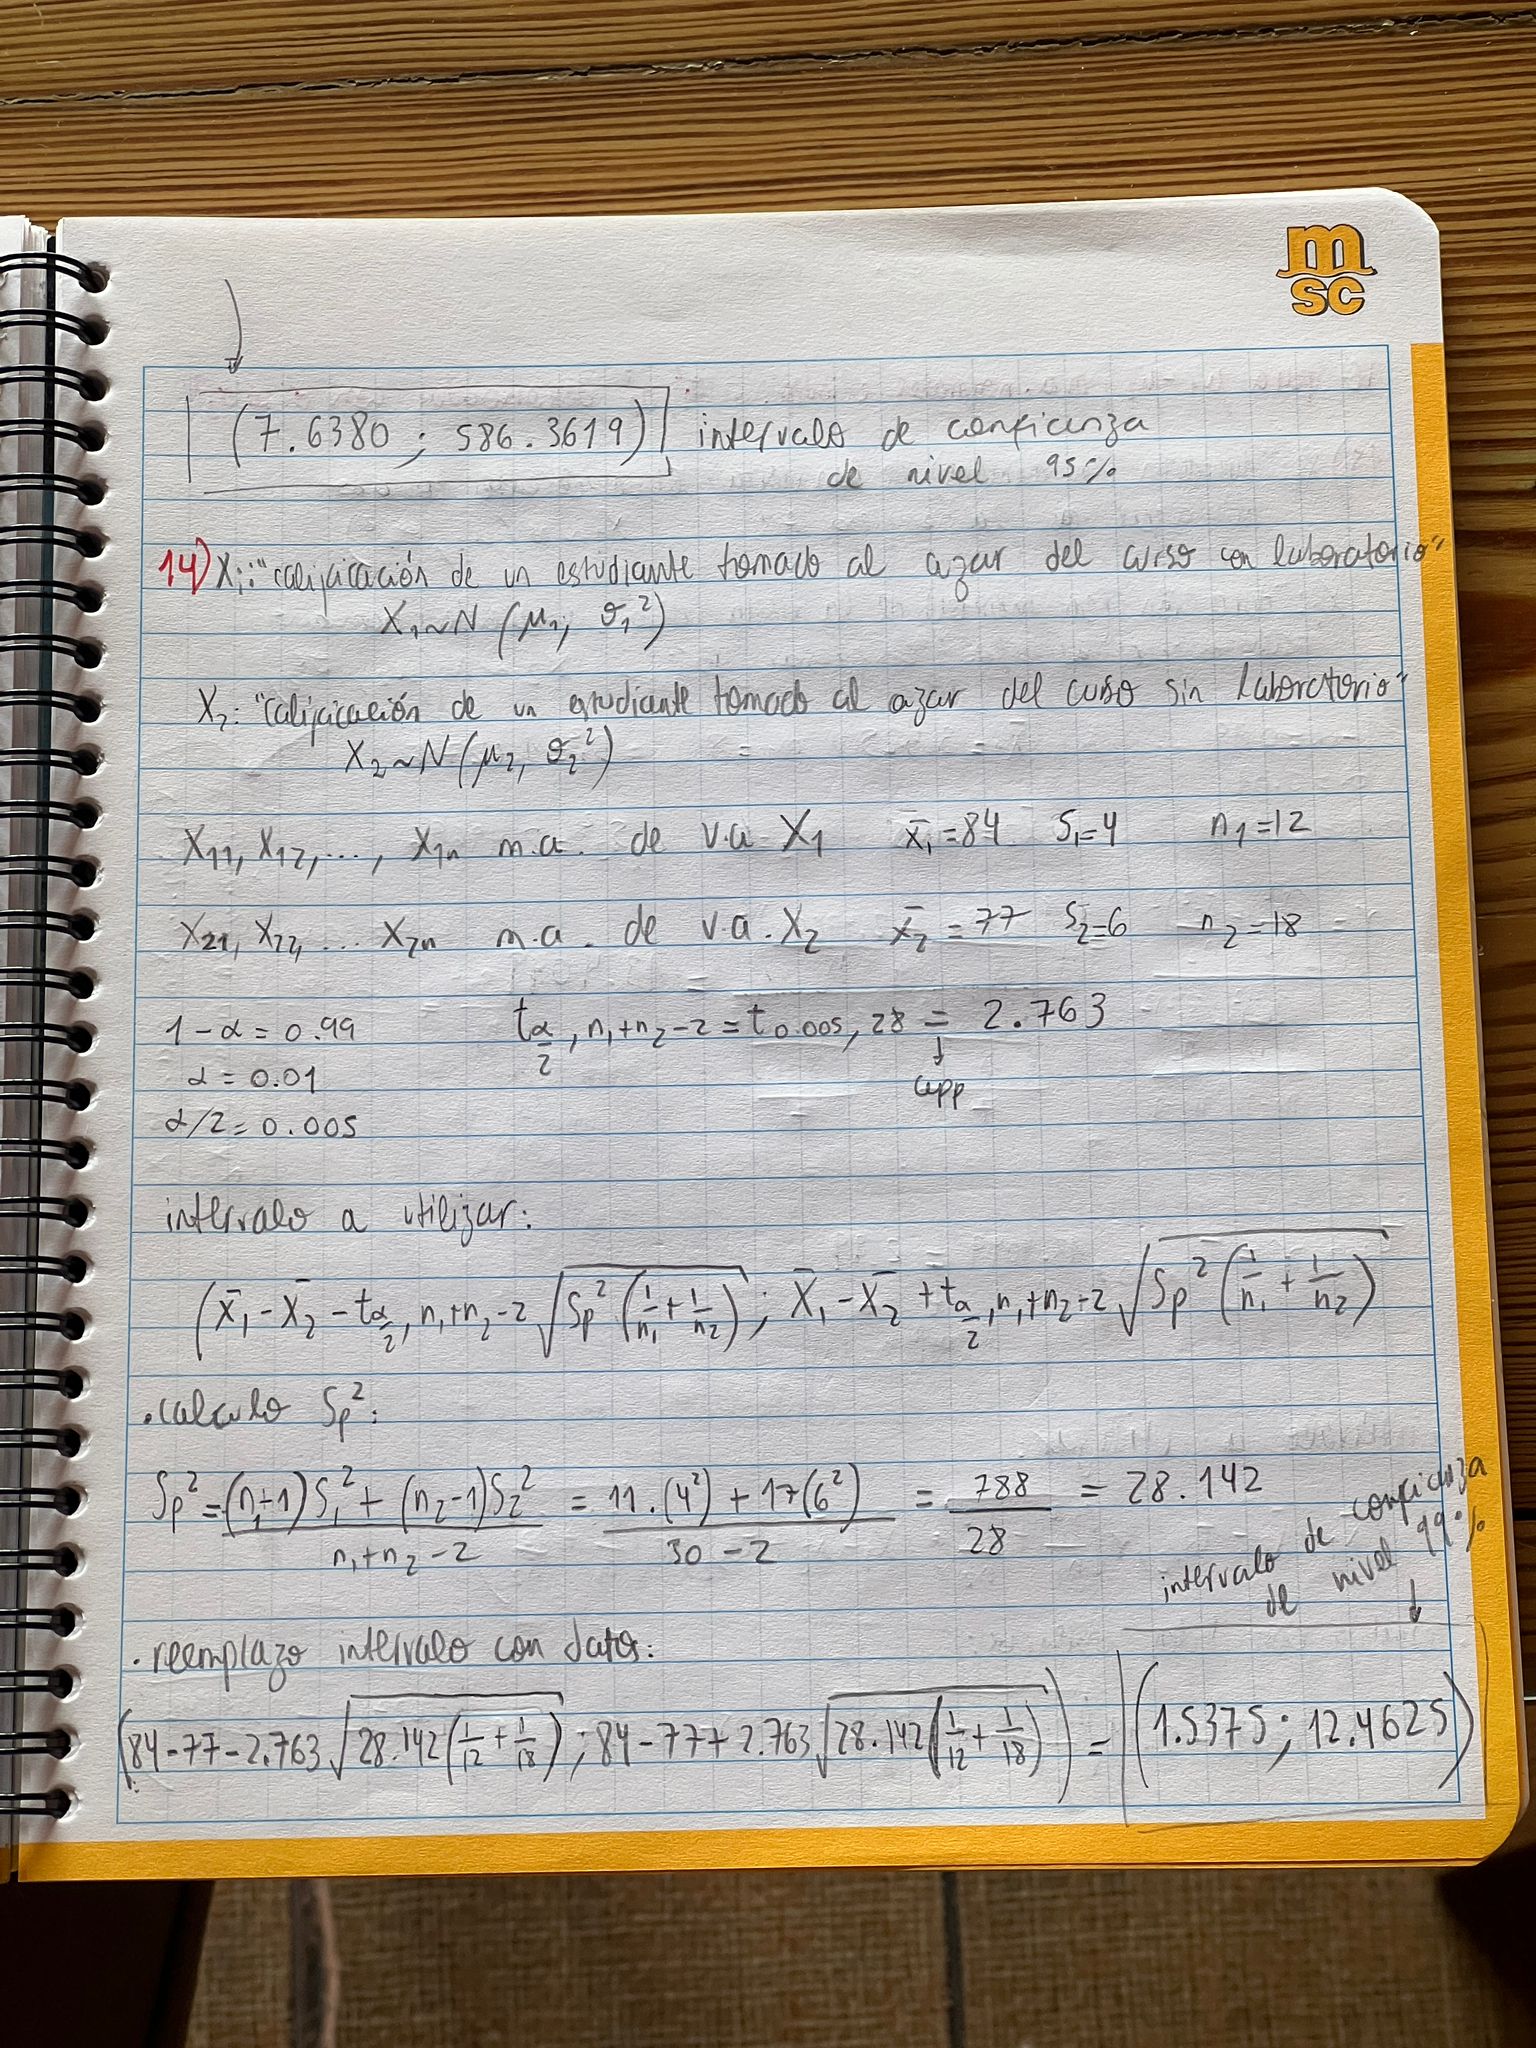 m
sc
(7.6380 ; 586.3619) intervalo de confianza
de nivel 95%
14) X₁: "calificación de un estudiante tomado al azar del curso con laboratorio"
X₁~N (μ₁, σ₁²)
X₂: "calificación de un estudiante tomado al azar del curso sin laboratorio"
X₂~N(μ₂, σ₂²)
X₁₁, X₁₂, ..., X₁ₙ m.a. de v.a X₁ x̄₁=84 S₁=4 n₁=12
X₂₁, X₂₂, ... X₂ₙ m.a. de v.a. X₂ x̄₂=77 S₂=6 n₂=18
1-α=0.99 t α/2, n₁+n₂-2 = t 0.005, 28 = 2.763
α=0.01 ↓ app
α/2=0.005
intervalo a utilizar:
(X̄₁-X̄₂ - t α/2, n₁+n₂-2 √(Sp² (1/n₁ + 1/n₂)) ; X̄₁-X̄₂ + t α/2, n₁+n₂-2 √(Sp² (1/n₁ + 1/n₂))
.calculo Sp²:
Sp² = (n₁-1)S₁² + (n₂-1)S₂² / n₁+n₂-2 = 11.(4²) + 17(6²) / 30-2 = 788 / 28 = 28.142
intervalo de confianza
de nivel 99%
.reemplazo intervalo con datos:
(84-77-2.763 √(28.142 (1/12 + 1/18)) ; 84-77+2.763 √(28.142 (1/12 + 1/18))) = (1.5375 ; 12.4625)